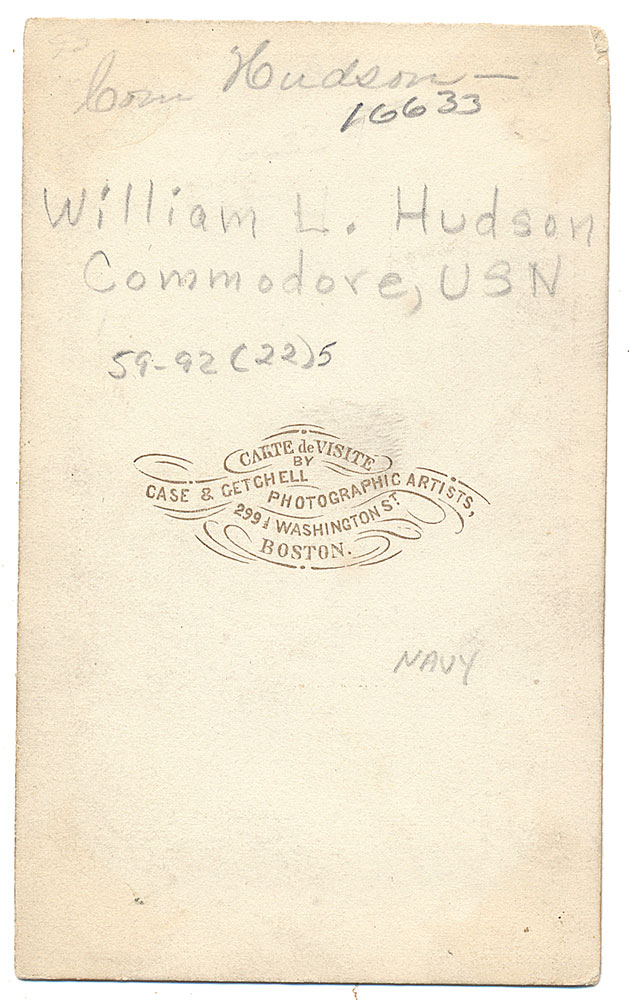 Com Hudson —
16633
William L. Hudson
Commodore, USN
59-92(22)5
CARTE de VISITE
BY
CASE & GETCHELL
PHOTOGRAPHIC ARTISTS,
299½ WASHINGTON ST.
BOSTON.
NAVY